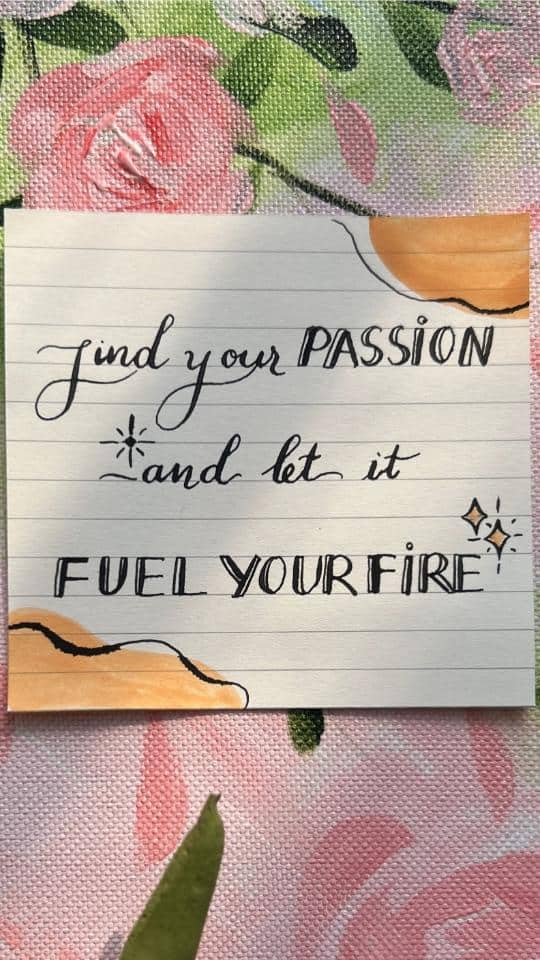 find your PASSiON
and let it
FUEL YOUR FiRE